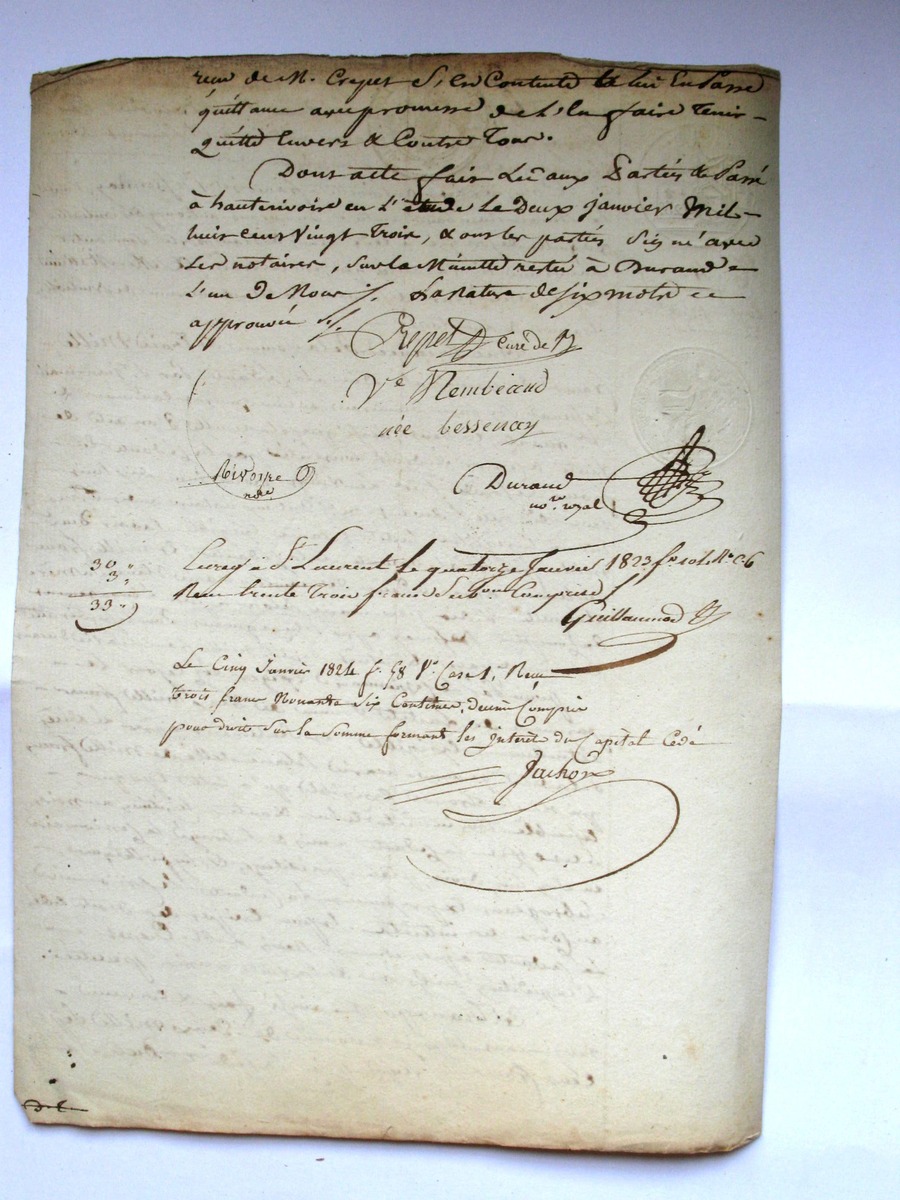 reçu de M. Crepet S'en Contente & lui En Passe
quittance avec promesse de l'En faire Tenir
quitte Envers & Contre Tous.
Dont acte fait Lu aux Parties & Passé
à hauterivoire en l'étude le Deux janvier Mil
huit cent Vingt Trois, & ont les parties Signé avec
les notaires, sur la Minutte restée à Durand
l'un de Nous ./. La rature de six mots
approuvée ./.
Crepet Curé de
Ve Nembéaud
née bessenay
Rivoire nore
Durand
nore royal
30 "
3 "
33 "
Enreg à St Laurent le quatorze Janvier 1823 fo 101 Ro C 6
Reçu trente Trois francs Subvon Comprise
Guillaumod
Le Cinq Janvier 1824 f. 58 Vo Case 1, Reçu
trois francs Nonante Six Centimes, decime Compris
pour droit Sur la Somme formant les jnterêt du Capital Cedé